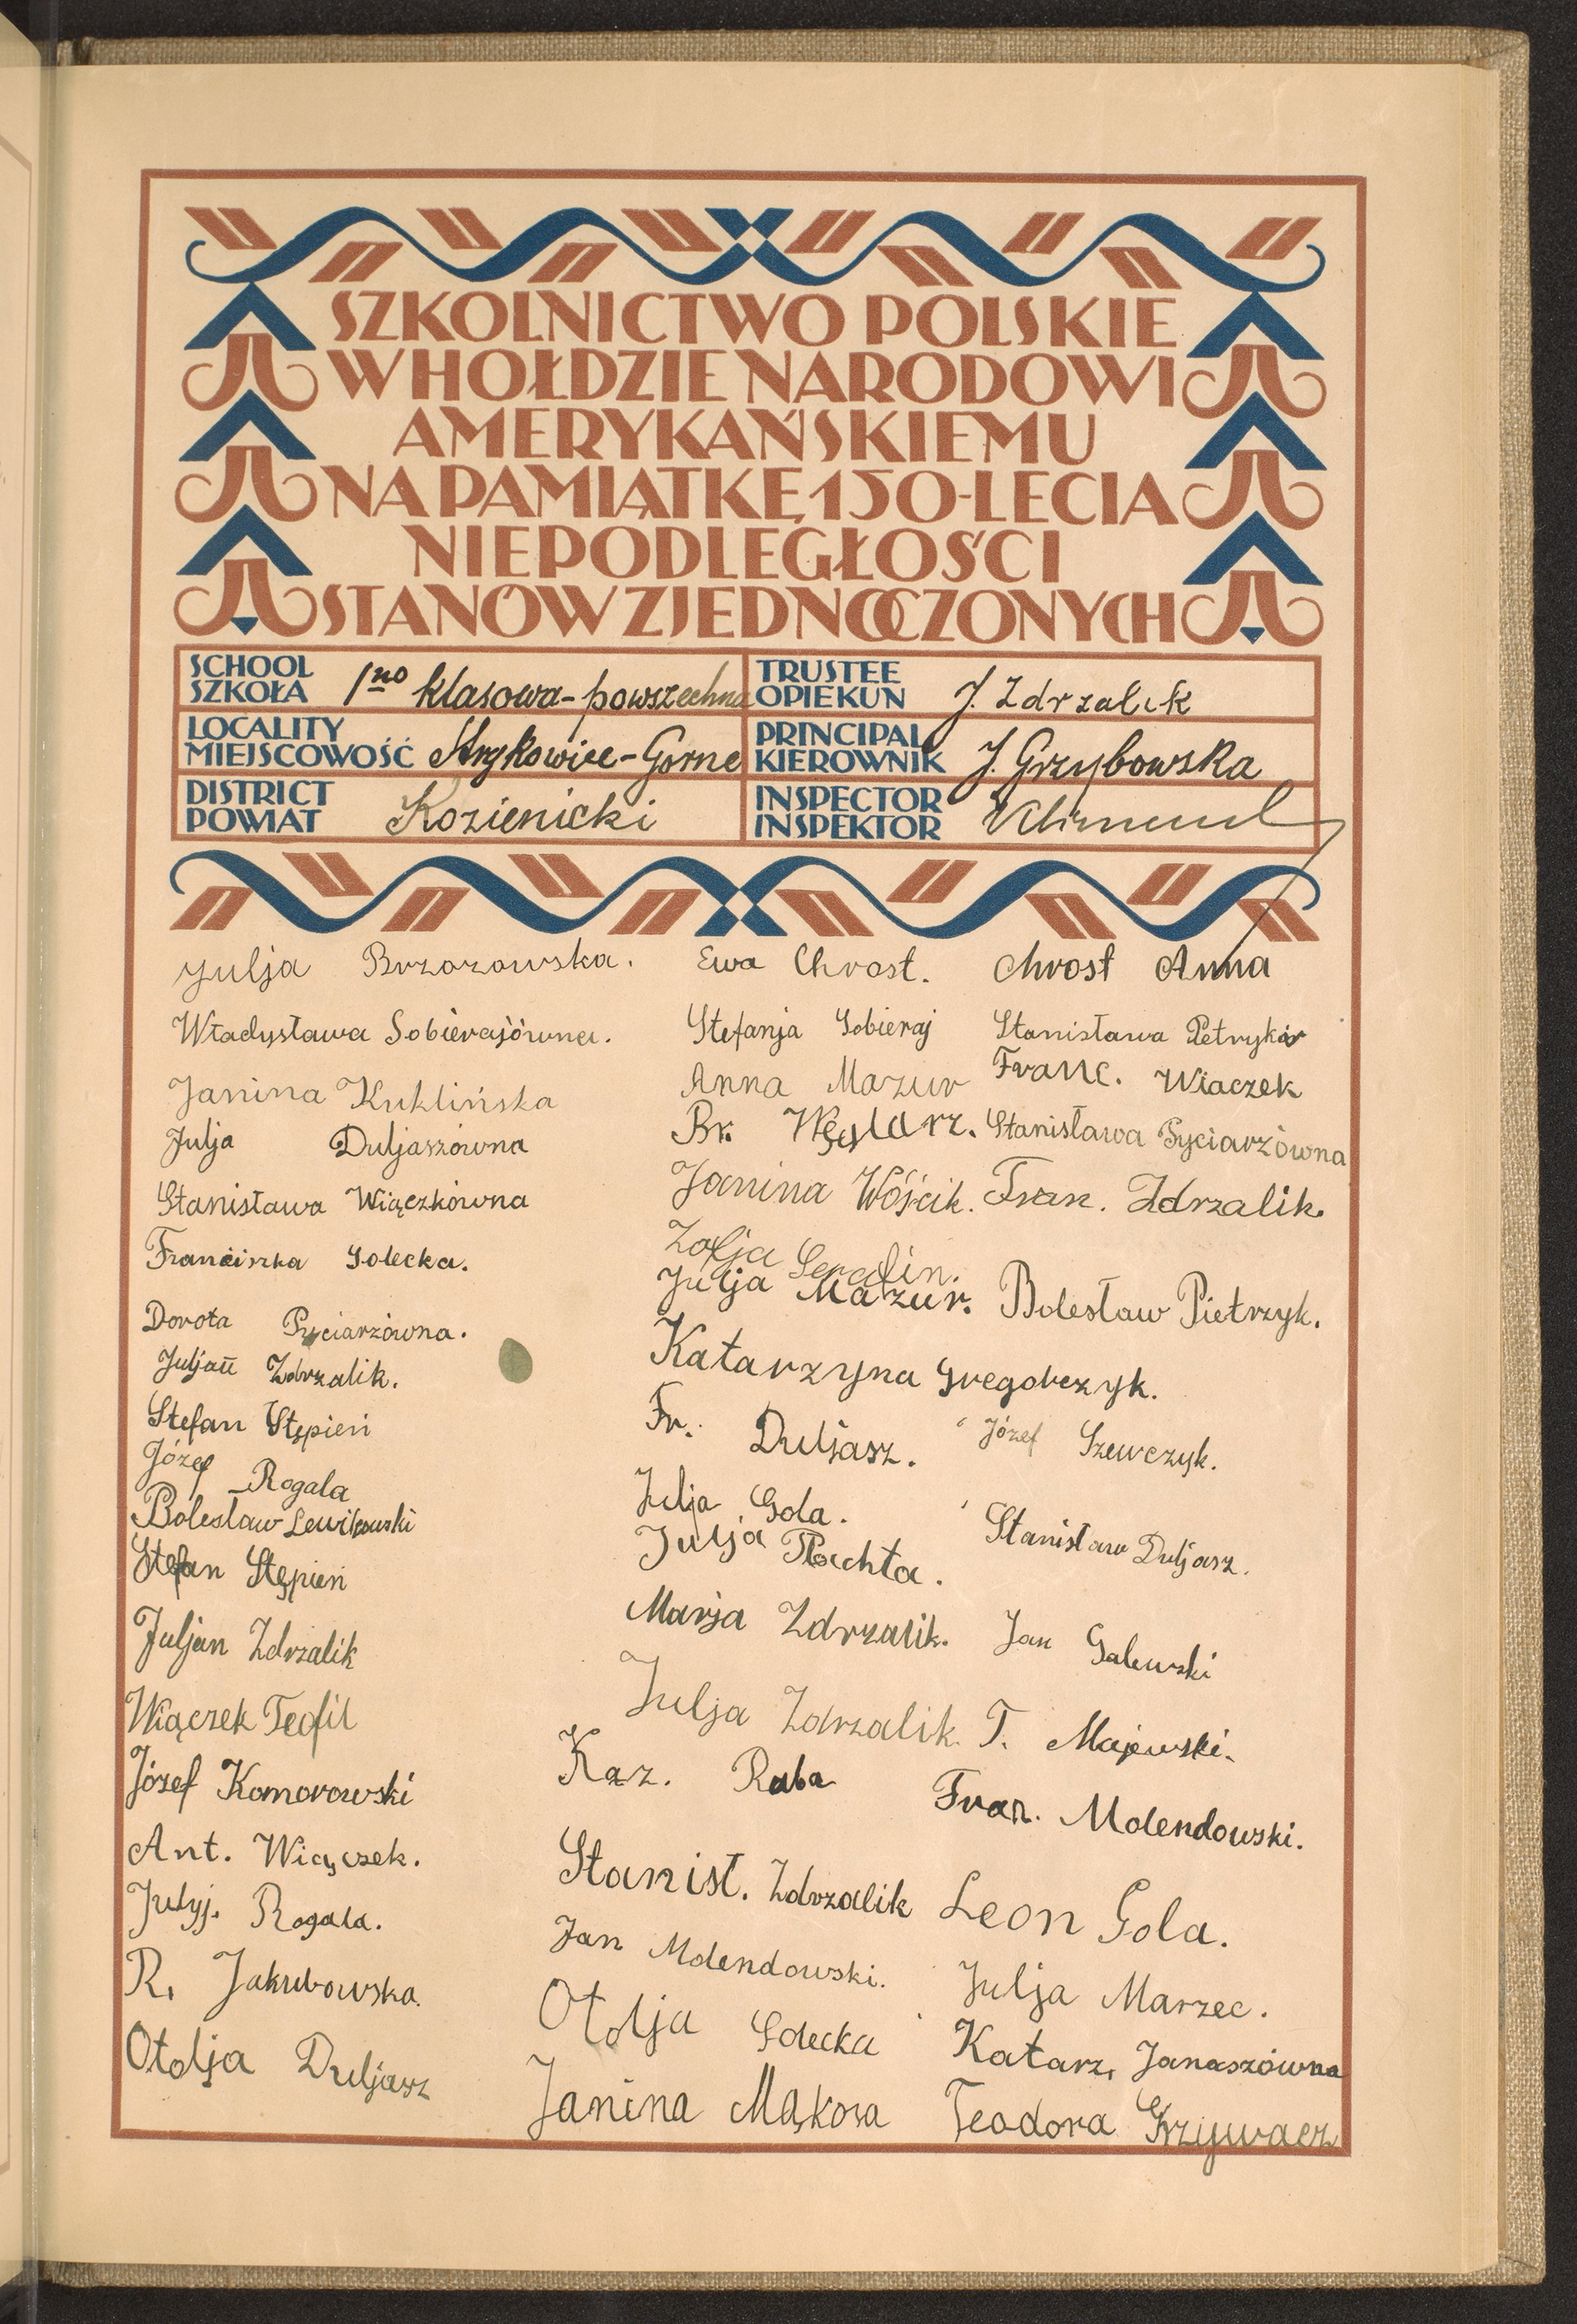 SZKOLNICTWO POLSKIE
W HOŁDZIE NARODOWI
AMERYKAŃSKIEMU
NA PAMIĄTKĘ 150-LECIA
NIEPODLEGŁOŚCI
STANÓW ZJEDNOCZONYCH
SCHOOL
SZKOŁA 1no klasowa-powszechna
TRUSTEE
OPIEKUN J. Zdrzalik
LOCALITY
MIEJSCOWOŚĆ Strykowice-Gorne
PRINCIPAL
KIEROWNIK J. Grzybowska
DISTRICT
POWIAT Kozienicki
INSPECTOR
INSPEKTOR
Julja Brzozowska.
Władysława Sobierajówna.
Janina Kuklińska
Julja Duljaszówna
Stanisława Wiączkówna
Franciszka Solecka.
Dorota Pyciarzówna.
Juljan Zdrzalik.
Stefan Stępień
Józef Rogala
Bolesław Lewikowski
Stefan Stępień
Juljan Zdrzalik
Wiączek Teofil
Józef Komorowski
Ant. Wiączek.
Julj. Rogala.
R. Jakubowska.
Otolja Duljasz
Ewa Chrost.
Stefanja Sobieraj
Anna Mazur
Br. Węglarz.
Janina Wójcik.
Zofja Serafin.
Julja Mazur.
Katarzyna Gregorczyk.
Fr. Duljasz.
Julja Gola.
Julja Płachta.
Marja Zdrzalik.
Julja Zdrzalik.
Kaz. Raba
Stanisł. Zdrzalik
Jan Molendowski.
Otolja Solecka
Janina Mąkosa
Chrost Anna
Stanisława Petryków
Franc. Wiaczek
Stanisława Pyciarzówna
Fran. Zdrzalik.
Bolesław Pietrzyk.
Józef Szewczyk.
Stanisław Duljasz.
Jan Galewski
T. Majewski.
Fran. Molendowski.
Leon Gola.
Julja Marzec.
Katarz. Janaszówna
Teodora Grzywacz